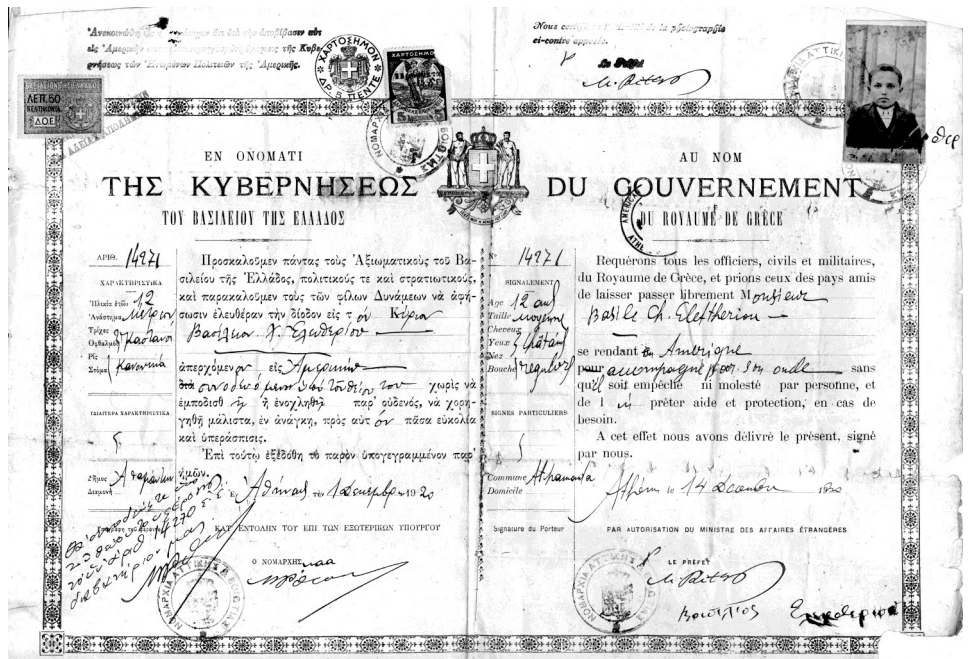 Ἀνεκοινώθη
εἰς Ἀμερικὴν τῆς Κυβερ-
νήσεως τῶν Ἡνωμένων Πολιτειῶν τῆς Ἀμερικῆς.
Nous certifions de la photographie
ci-contre apposée.
Le Préfet
ΧΑΡΤΟΣΗΜΟΝ
ΔΡ. 5 ΠΕΝΤΕ
ΧΑΡΤΟΣΗΜΟΝ
5 5
ΛΕΠ. 50
ΠΕΝΤΗΚΟΝΤΑ
ΔΟΕ
ΕΝ ΟΝΟΜΑΤΙ
ΤΗΣ ΚΥΒΕΡΝΗΣΕΩΣ
ΤΟΥ ΒΑΣΙΛΕΙΟΥ ΤΗΣ ΕΛΛΑΔΟΣ
ΑΡΙΘ. 14271
ΧΑΡΑΚΤΗΡΙΣΤΙΚΑ
Ἡλικία ἐτῶν 12
Ἀνάστημα Μέτριον
Τρίχες
Ὀφθαλμοὶ Καστανοὶ
Ῥὶς
Στόμα Κανονικὰ
ΙΔΙΑΙΤΕΡΑ ΧΑΡΑΚΤΗΡΙΣΤΙΚΑ
Δῆμος
Διαμονὴ
Προσκαλοῦμεν πάντας τοὺς Ἀξιωματικοὺς τοῦ Βα-
σιλείου τῆς Ἑλλάδος, πολιτικούς τε καὶ στρατιωτικούς,
καὶ παρακαλοῦμεν τοὺς τῶν φίλων Δυνάμεων νὰ ἀφή-
σωσιν ἐλευθέραν τὴν δίοδον εἰς τὸν Κύριον
Βασίλειον Χ. Ἐλευθερίου
ἀπερχόμενον εἰς Ἀμερικὴν
χωρὶς νὰ
ἐμποδισθῇ ἢ ἐνοχληθῇ παρ' οὐδενός, νὰ χορη-
γηθῇ μάλιστα, ἐν ἀνάγκῃ, πρὸς αὐτὸν πᾶσα εὐκολία
καὶ ὑπεράσπισις.
Ἐπὶ τούτῳ ἐξεδόθη τὸ παρὸν ὑπογεγραμμένον παρ'
ἡμῶν.
Ἐν Ἀθήναις τῇ 1920
ΚΑΤ' ΕΝΤΟΛΗΝ ΤΟΥ ΕΠΙ ΤΩΝ ΕΞΩΤΕΡΙΚΩΝ ΥΠΟΥΡΓΟΥ
Ο ΝΟΜΑΡΧΗΣ
AU NOM
DU GOUVERNEMENT
DU ROYAUME DE GRÈCE
N° 14271
SIGNALEMENT
Age 12 ans
Taille moyenne
Cheveux
Yeux Châtains
Nez
Bouche reguliers
SIGNES PARTICULIERS
Commune Athamanta
Domicile
Signature du Porteur
Requérons tous les officiers, civils et militaires,
du Royaume de Grèce, et prions ceux des pays amis
de laisser passer librement Monsieur
Basile Ch. Eleftheriou
se rendant en Amérique
pour accompagné par son oncle sans
qu'il soit empêché ni molesté par personne, et
de lui prêter aide et protection, en cas de
besoin.
A cet effet nous avons délivré le présent, signé
par nous.
Athènes le 14 Décembre 1920
PAR AUTORISATION DU MINISTRE DES AFFAIRES ÉTRANGÈRES
LE PRÉFET